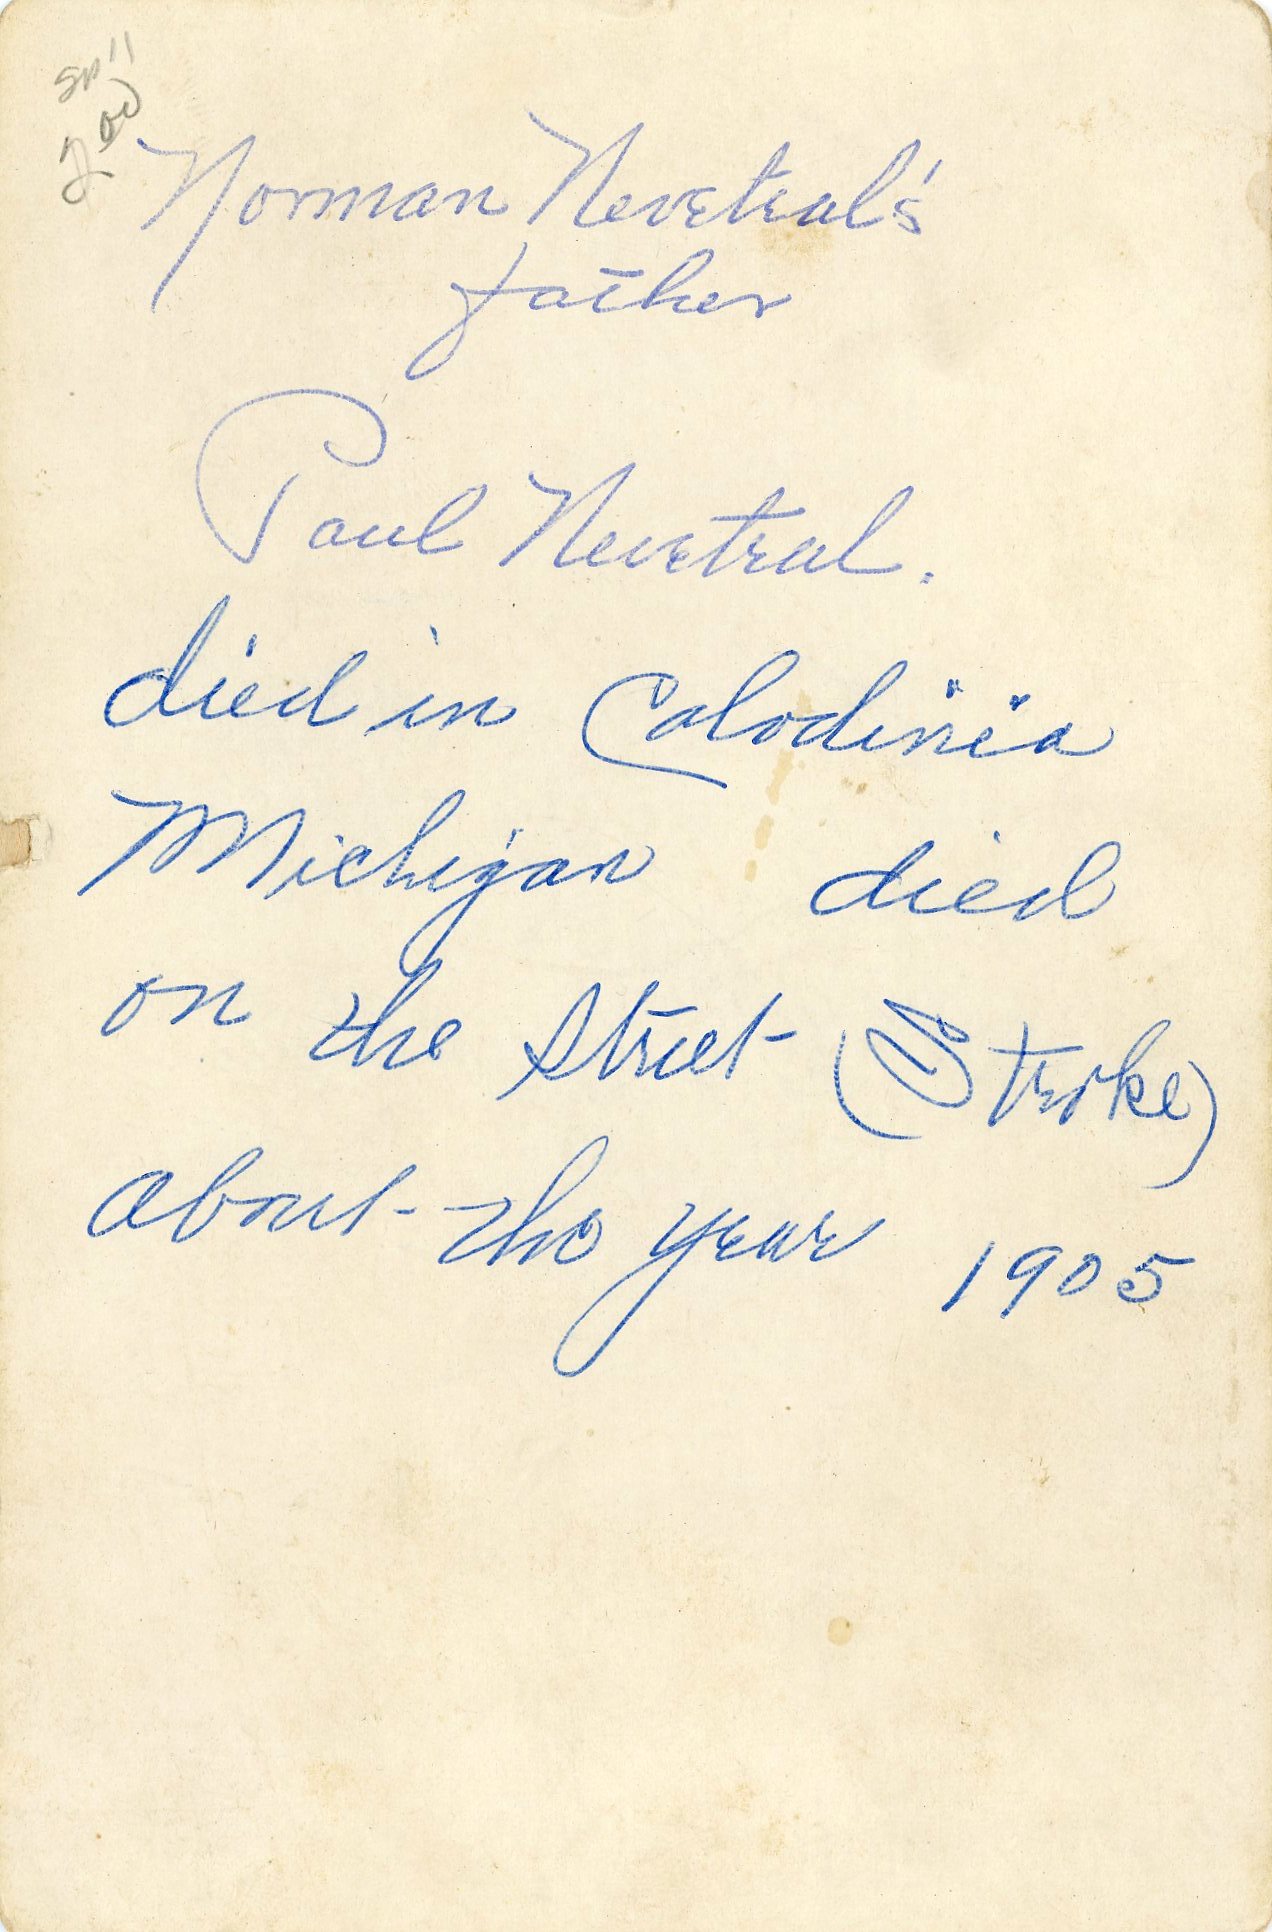 Norman Nevetral's
father
Paul Nevetral.
died in Calodinia
Michigan died
on the street (Stroke)
about the year 1905